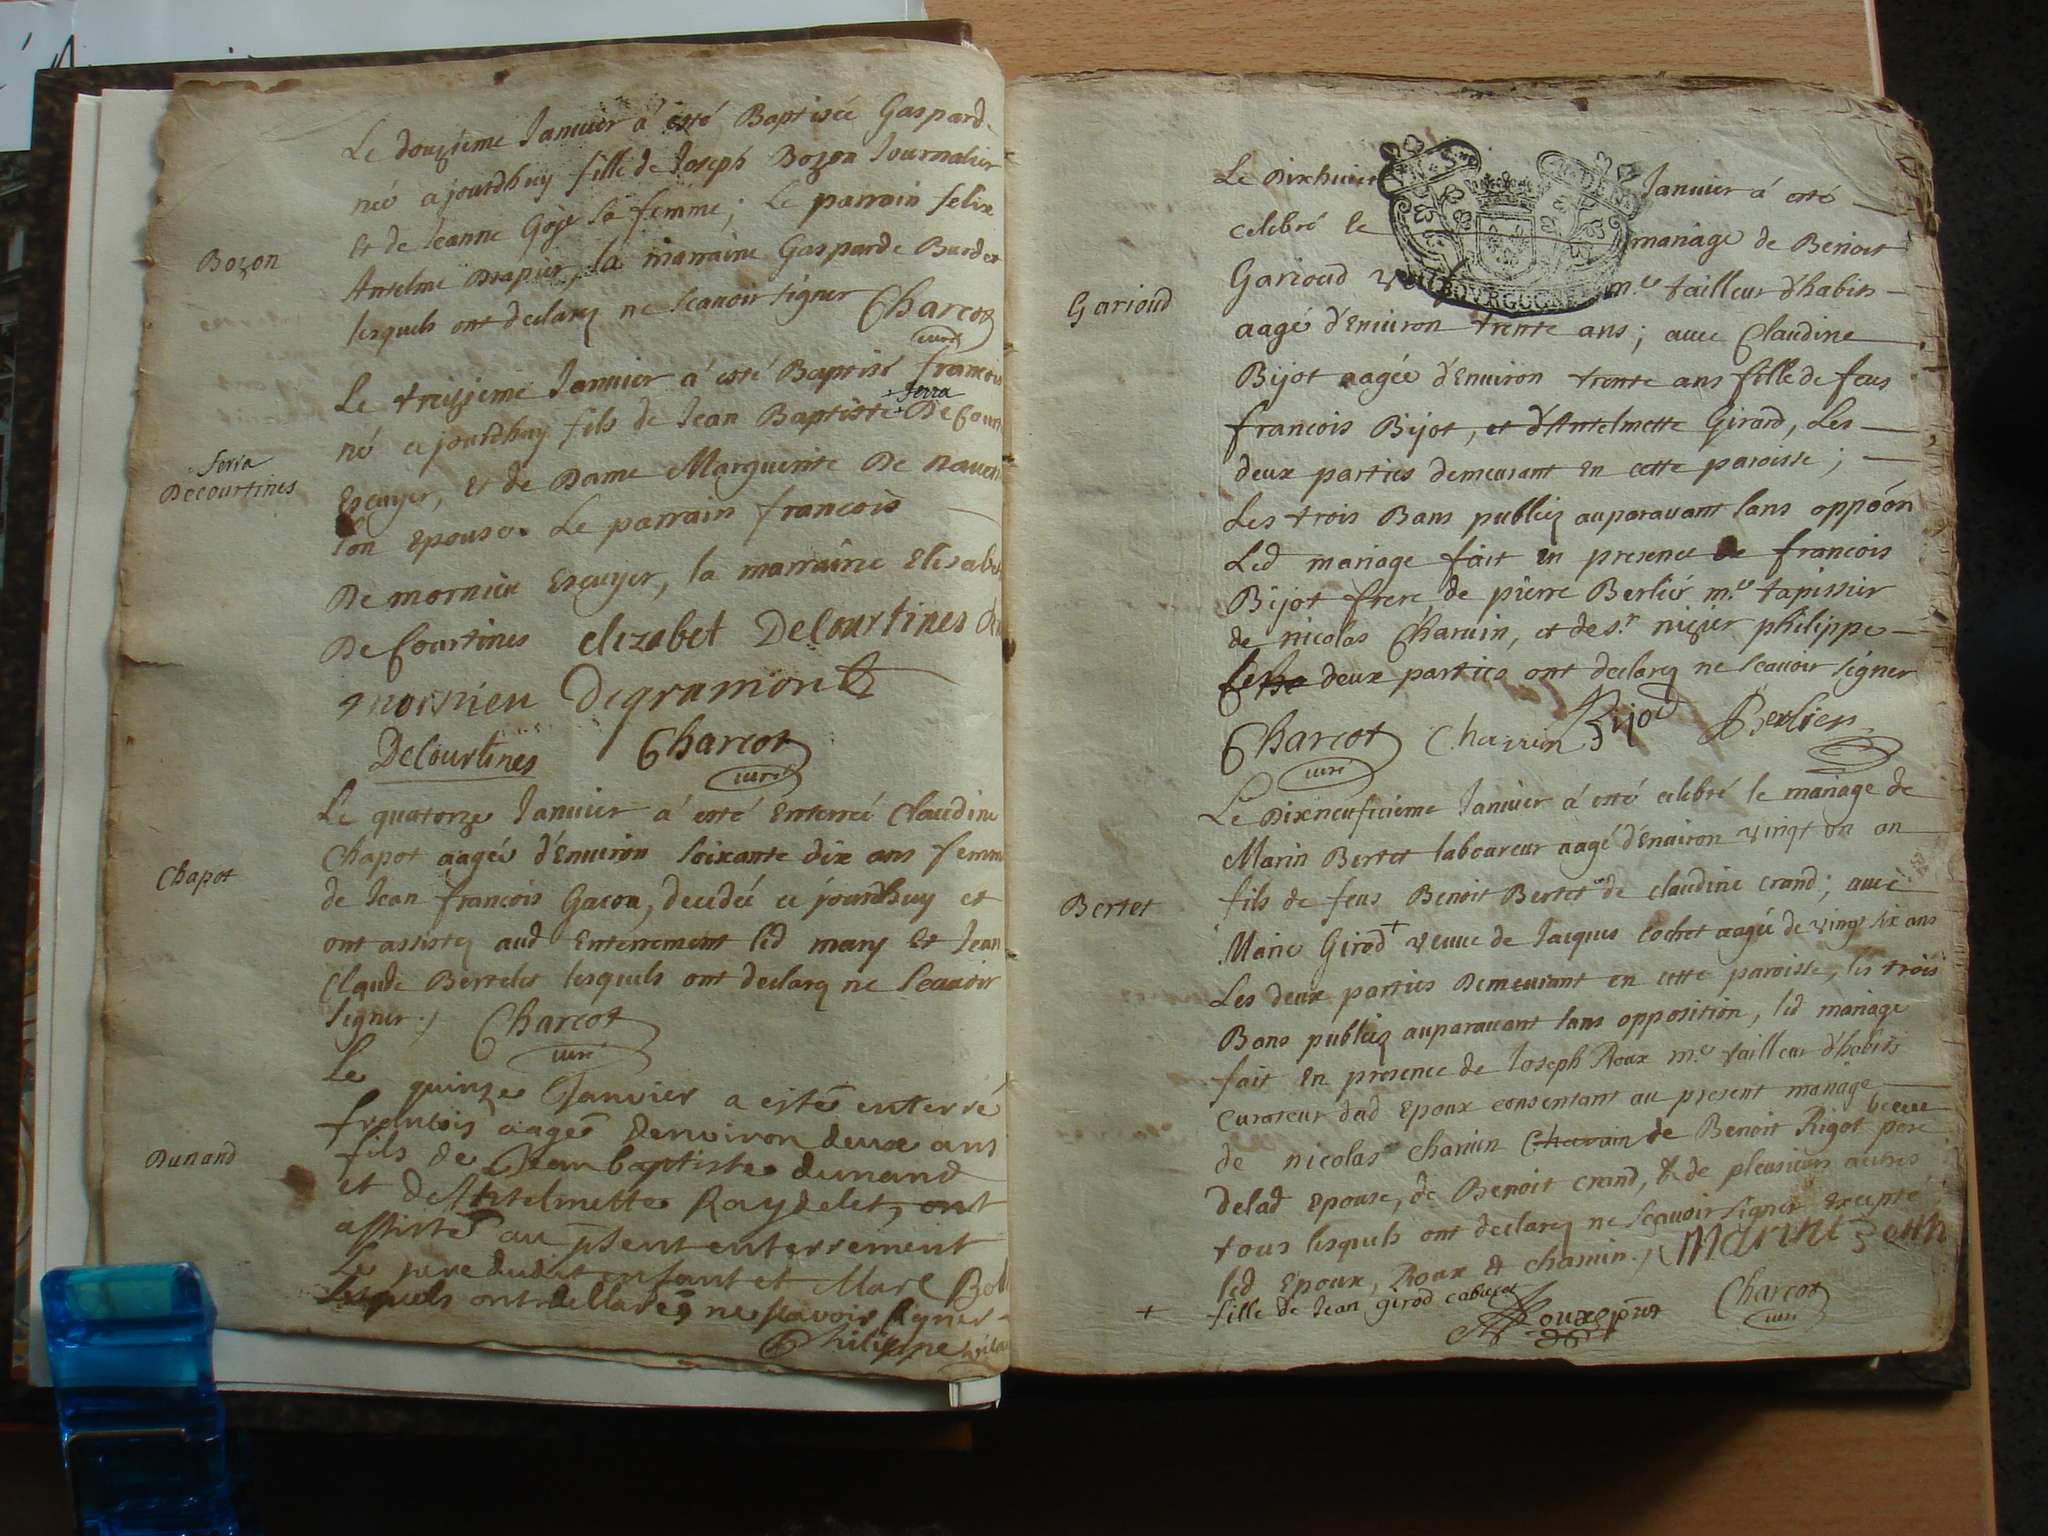 Bozon
Le douzieme Janvier a esté Baptisée Gaspard
née ajourdhuy fille de Joseph Bozon Journalier
Et de Jeanne sa femme; Le parrain felix
Anselme Drapier, la marraine Gasparde Burdet
lesquels ont declarez ne scavoir signer Charcot
curé
Serra
Decourtines
Le treizieme Janvier a esté Baptisé francois
Serra
né ce jourdhuy fils de Jean Baptiste De Cour
Escuyer, Et de Dame Marguerite De
son Epouse. Le parrain francois
De mornieu Escuyer, la marraine Elisabet
De Courtines elizabet DeCourtines
mornieu Degramont
DeCourtines Charcot
curé
Chapot
Le quatorze Janvier a esté Enterrée Claudine
Chapot aagée d'Environ soixante dix ans femm
de Jean francois Gacon, decedée ce jourdhuy et
ont assistez aud Enterrement led mary Et Jean
Claude Bertelet lesquels ont declarez ne scavoir
signer./ Charcot
curé
Dunand
Le quinze Janvier a esté enterré
francois aagé denviron deux ans
fils de Jean baptiste dunand
et de Antelmette Raydelet, ont
assisté au psent enterrement
Le pere dudit enfant et Marc
lesquels ont dellarés ne scavoir signer
Philippe
Garioud
Le Dixhuit Janvier a esté
celebré le mariage de Benoit
Garioud m.e tailleur d'habits
BOVRGOGNE
aagé d'Environ trente ans; avec Claudine
Bijot aagée d'Environ trente ans fille de feus
francois Bijot, et d'Antelmette Girard, Les
deux parties demeurant en cette paroisse;
Les trois Bans publiez auparavant sans oppôon
Led mariage fait en presence de francois
Bijot frere, de pierre Berlier m.e tapissier
de nicolas Charvin, et de s.r nizier philippe
deux parties ont declarez ne scavoir signer
Charcot Charvin Bijod Berlier
curé
Bertet
Le Dixneufvieme Janvier a esté celebré le mariage de
Marin Bertet laboureur aagé d'Environ vingt un an
fils de feus Benoit Bertet de claudine crand; avec
Marie Girod + veuve de Jacques cochet aagée de vingt six ans
Les deux parties Demeurant en cette paroisse, les trois
Bans publiez auparavant sans opposition, led mariage
fait en presence de Joseph Roux m.e tailleur d'habits
curateur dud Epoux consentant au present mariage
de nicolas charvin Charvin de Benoit Rigot beau pere
delad Epouse, de Benoit crand, & de plusieurs autres
tous lesquels ont declarez ne scavoir signer excepté
led Epoux, Roux & charvin./
+ fille de Jean girod
Charcot
curé